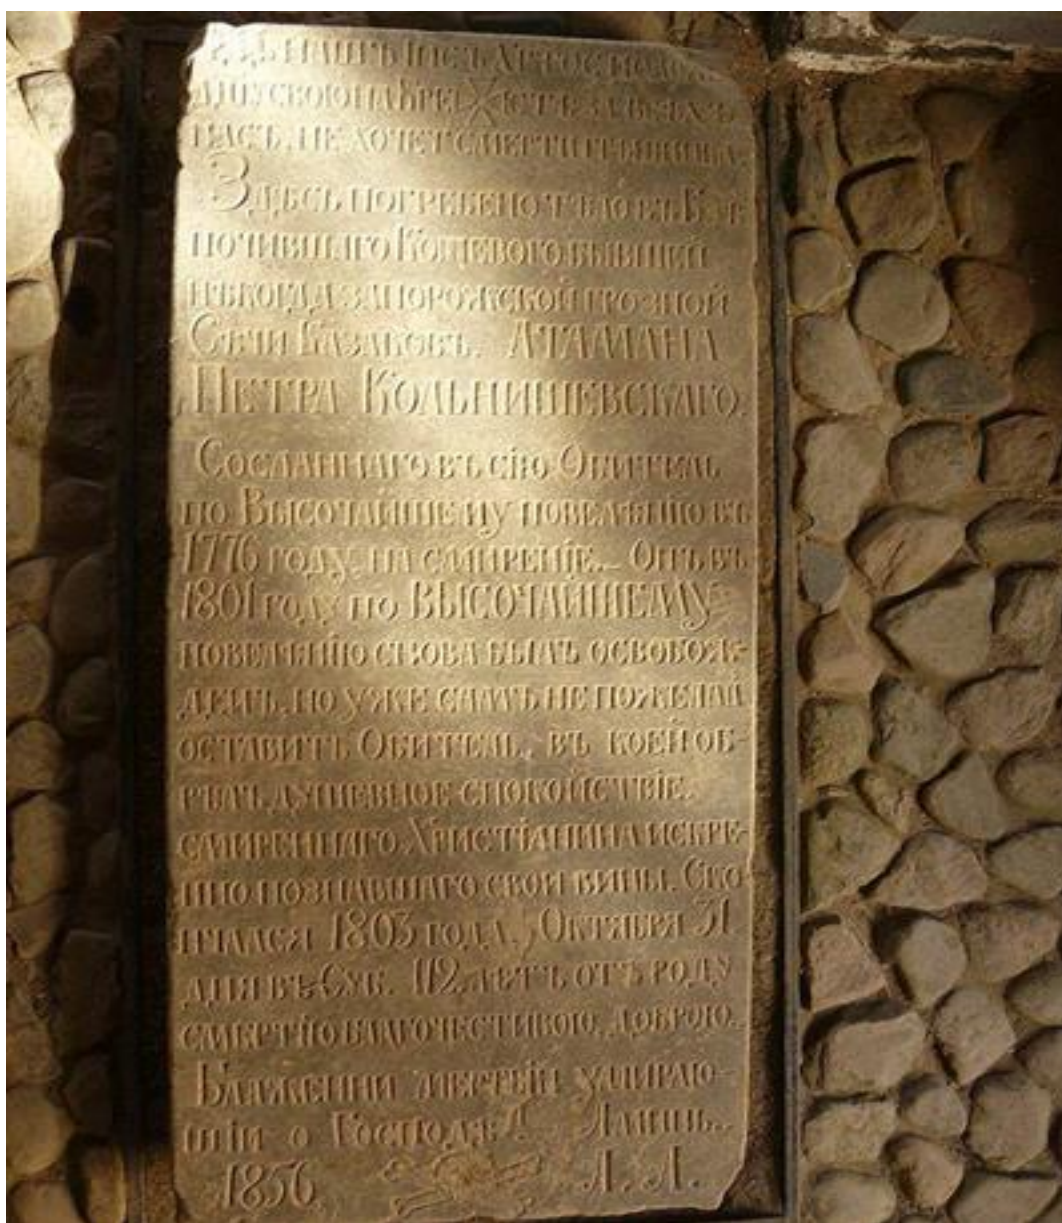 НАШЪ ІИС ХРТОС ПОЛОЖ
ДШУ СВОЮ НА КРЕСТѢ ЗА ВСѢХЪ
НАСЪ, НЕ ХОЧЕТ СМЕРТИ ГРѢШНИКА
ЗДѢСЬ ПОГРЕБЕНО ТѢЛО ВЪ БОГѢ
ПОЧИВШАГО КОШЕВОГО БЫВШЕЙ
НѢКОГДА ЗАПОРОЖСКОЙ ГРОЗНОЙ
СѢЧИ КАЗАКОВЪ. АТАМАНА
ПЕТРА КОЛЬНИШЕВСКАГО.
СОСЛАННАГО ВЪ СІЮ ОБИТЕЛЬ
ПО ВЫСОЧАЙШЕМУ ПОВЕЛѢНІЮ ВЪ
1776 ГОДУ, НА СМИРЕНІЕ. – ОНЪ ВЪ
1801 ГОДУ ПО ВЫСОЧАЙШЕМУ
ПОВЕЛѢНІЮ СНОВА БЫЛЪ ОСВОБОЖ-
ДЕНЪ, НО УЖЕ САМЪ НЕ ПОЖЕЛАЛ
ОСТАВИТЬ ОБИТЕЛЬ, ВЪ КОЕЙ ОБ-
РѢЛЪ ДУШЕВНОЕ СПОКОЙСТВІЕ.
СМИРЕННАГО ХРИСТІАНИНА ИСКРЕ-
ННО ПОЗНАВШАГО СВОИ ВИНЫ. СКО
НЧАЛСЯ 1803 ГОДА, ОКТЯБРЯ 31
ДНЯ ВЪ СУБ. 112 ЛѢТЪ ОТЪ РОДУ
СМЕРТІЮ БЛАГОЧЕСТИВОЮ, ДОБРОЮ.
БЛАЖЕННИ МЕРТВІИ УМИРАЮ-
ЩІИ О ГОСПОДѢ! АМИНЬ.
1856 А. А.